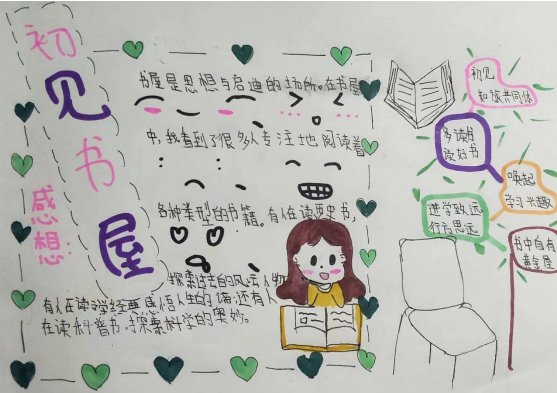 初见书屋
感想
书屋是思想与启迪的场所。在书屋
中，我看到了很多人专注地阅读着
各种类型的书籍。有人在读历史书，
探索过去的风云人物
有人在读文学经典感悟人生的 还有人
在读科普书，探索科学的奥妙。
初见
和谐共同体
多读书
读好书
唤起
学习兴趣
进学致远
行方思远
书中自有
黄金屋